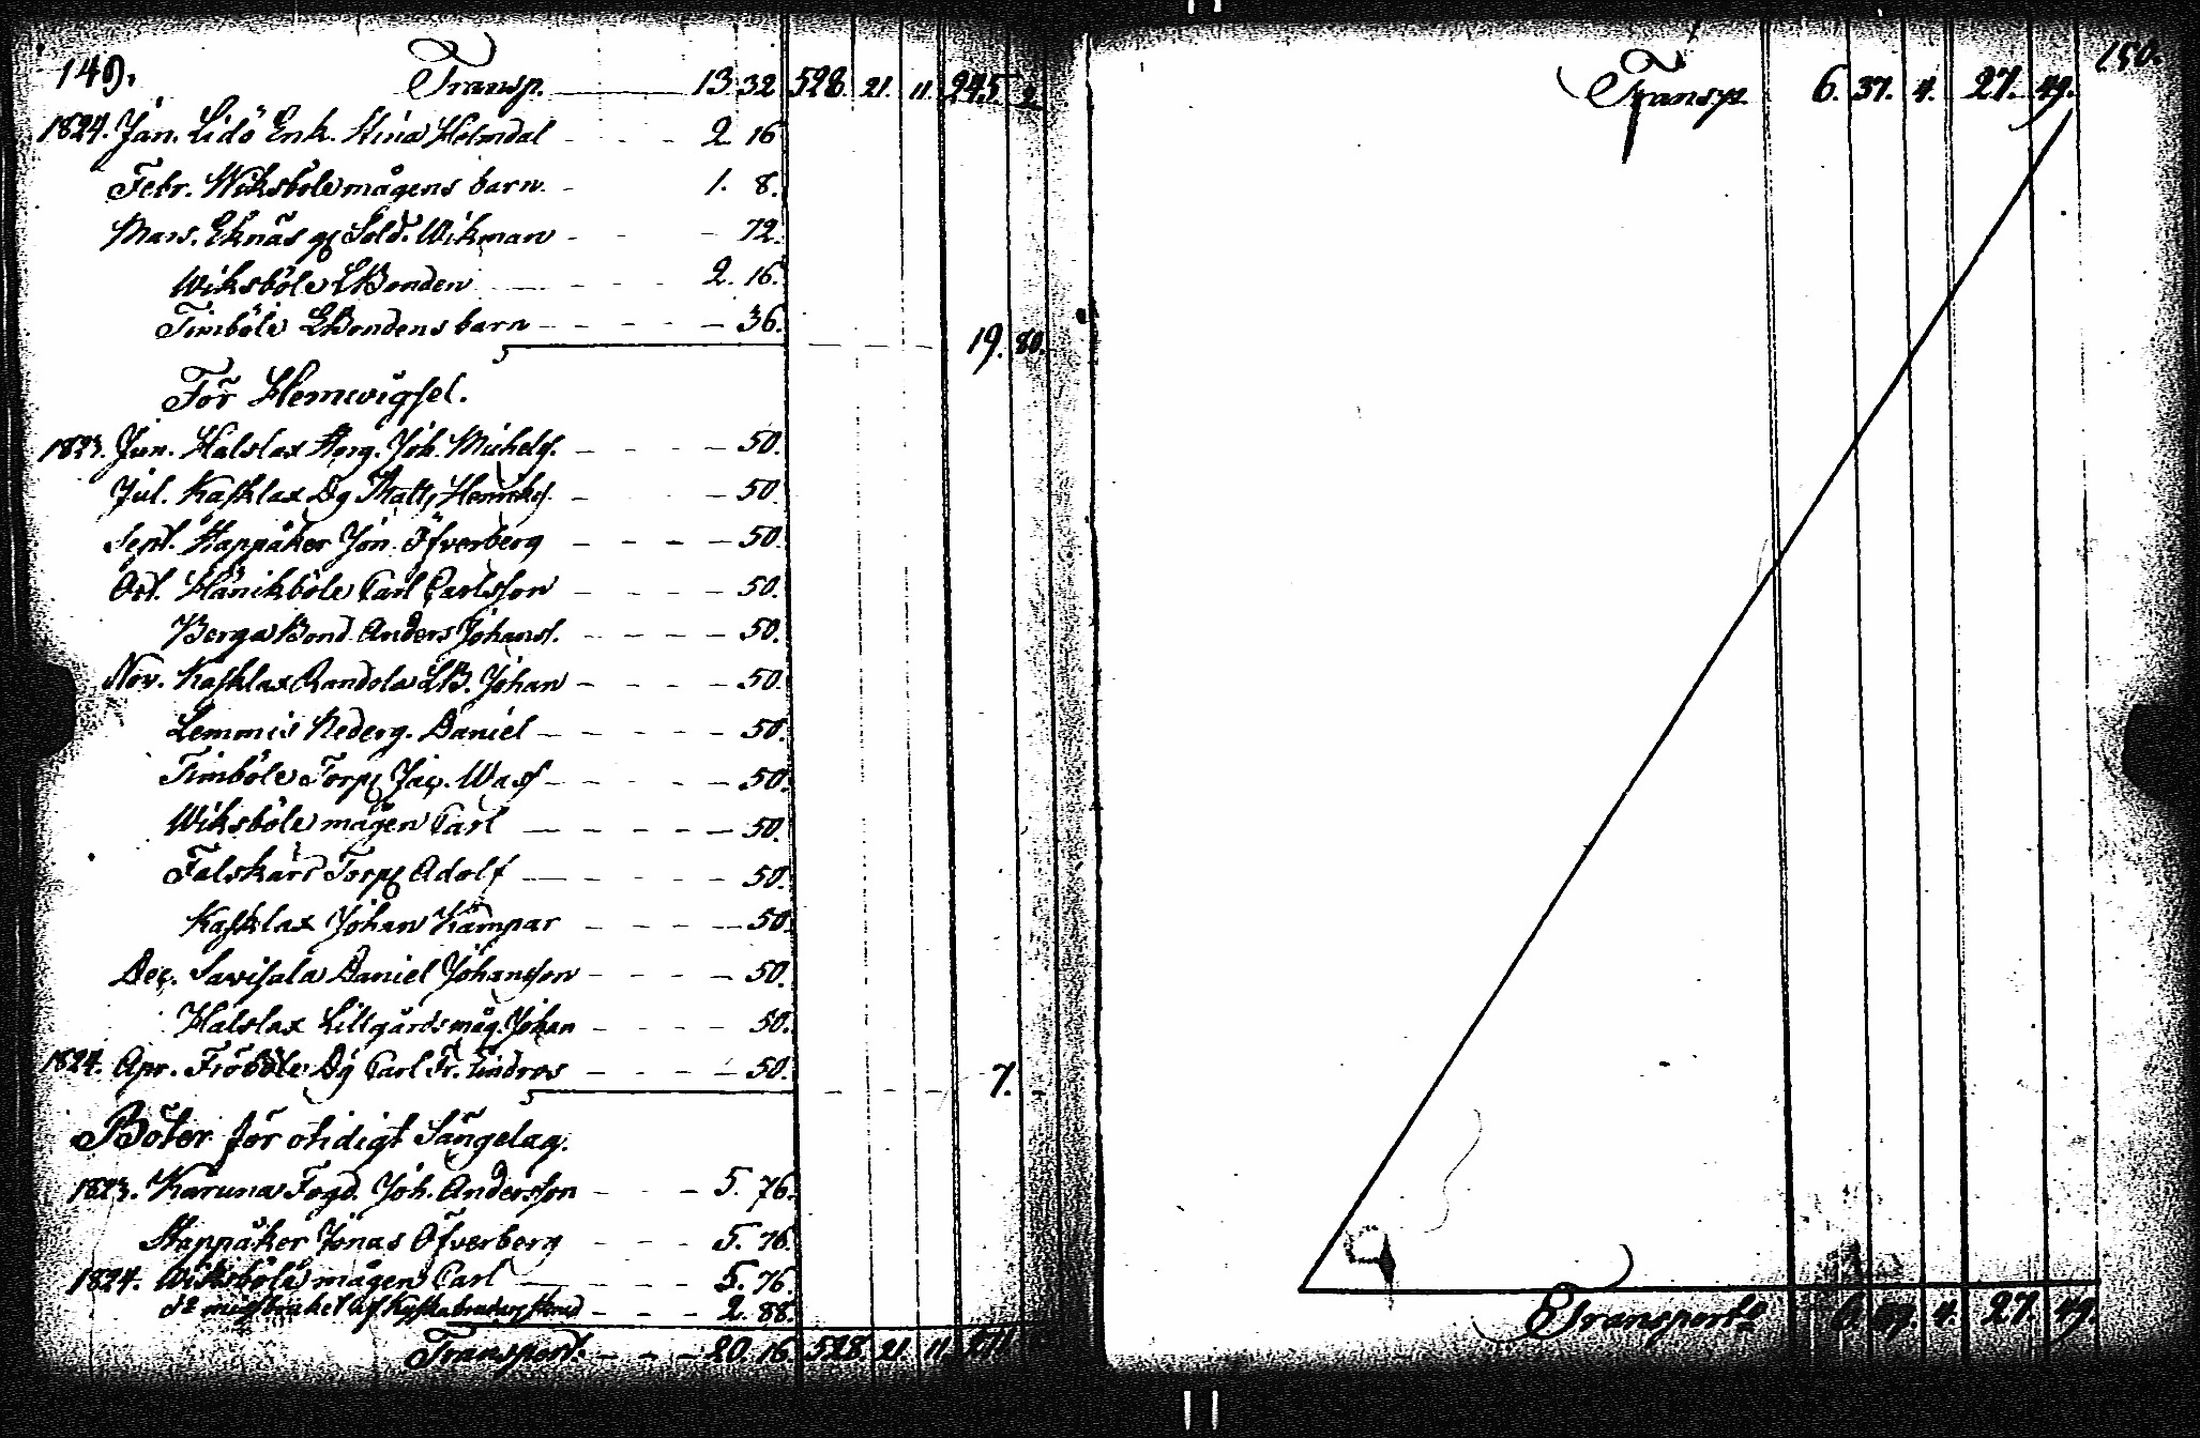 149.
Transp. 13. 32 528. 21. 11. 245. 2.
1824. Jan. Lidö Enk. Stina Holmdal - - - 2. 16
Febr. Wiksböle mågens barn. - 1. 8.
Mars. Eknäs gl Sold. Wikman - - - 72.
Wiksböle LBonden - - - 2. 16.
Timböle LBondens barn - - - - - 36.
19. 80.
För Hemwigsel.
1823. Jun. Halslax Joh. Michelss. - - - - 50.
Jul. Kasklax Dg Matts Henrikss. - - - 50.
Sept. Stappåker Jon. Öfverberg - - - - 50.
Oct. Hänikböle Carl Carlsson - - - - 50.
Berga Bond. Anders Johanss. - - - - 50.
Nov. Kasklax Randola LB. Johan - - - - 50.
Lemmis Nederg. Daniel - - - - - 50.
Timböle Torp. Jac. Wass - - - - - 50.
Wiksböle mågen Carl - - - - - 50.
Falskärs Torp. Adolf - - - - - 50.
Kasklax Johan Kämpar - - - - 50.
Dec. Savisala Daniel Johansson - - - - 50.
Halslax Lillgårds måg. Johan - - - - 50.
1824. Apr. Fröböle Dg Carl Fr. Lindros - - - - 50.
7. -
Böter för otidigt Sängelag.
1823. Karuna Fogd. Joh. Andersson - - - 5. 76.
Stappåker Jonas Öfverberg - - - 5. 76.
1824. Wiksböle mågen Carl - - - - 5. 76.
- - - 2. 88.
Transport. - - - 20. 16. 528. 21. 11
150.
Transp. 6. 37. 4. 27. 49.
Transport 4. 27. 49.